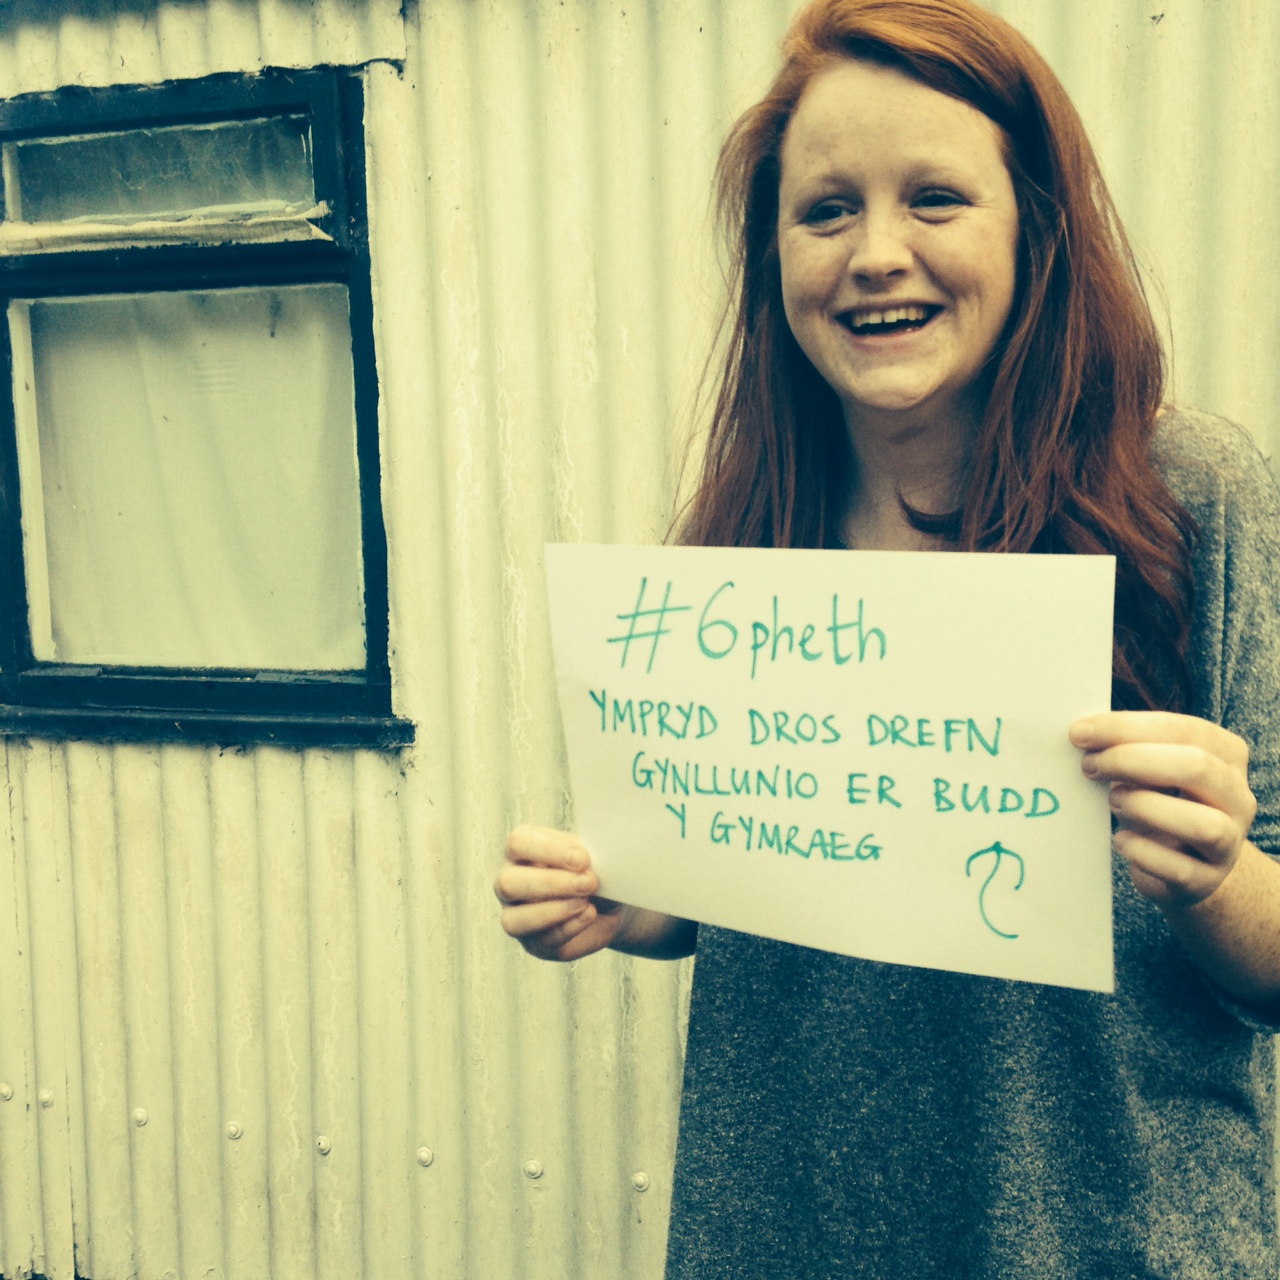 #6pheth
YMPRYD DROS DREFN
GYNLLUNIO ER BUDD
Y GYMRAEG